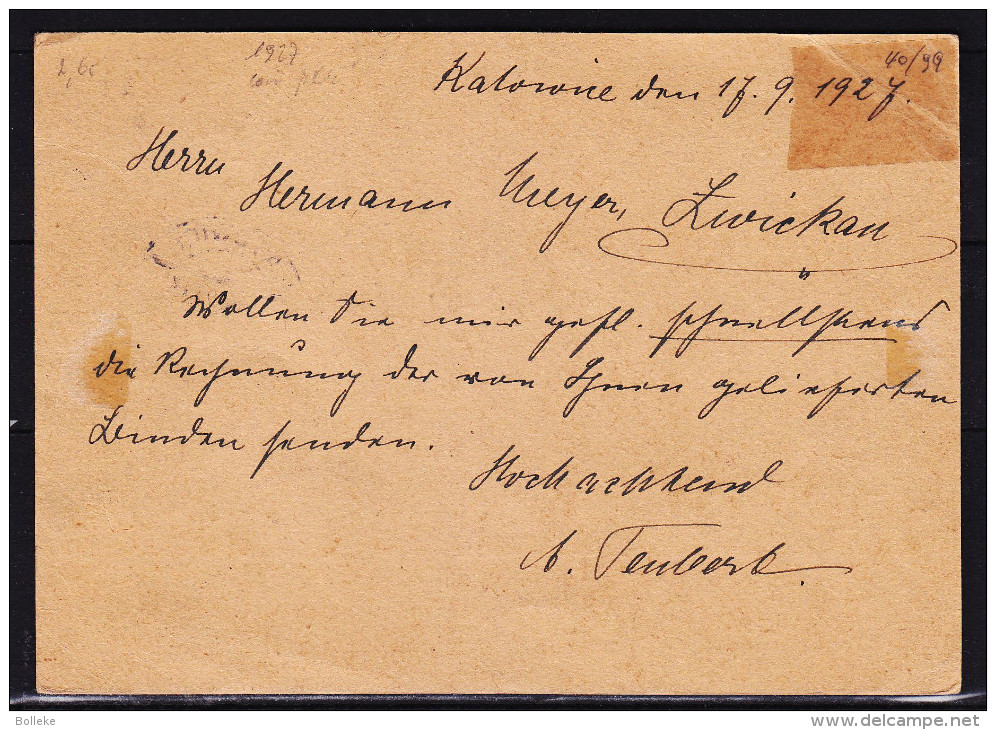 1927
40/99
Katowice den 17. 9. 1927.
Herrn
Hermann Meyer, Zwickau
Wollen Sie mir gefl. schnellstens
die Rechnung der von Ihnen gelieferten
Binden senden.
Hochachtend
A. Teubert.
Bolleke
www.delcampe.net